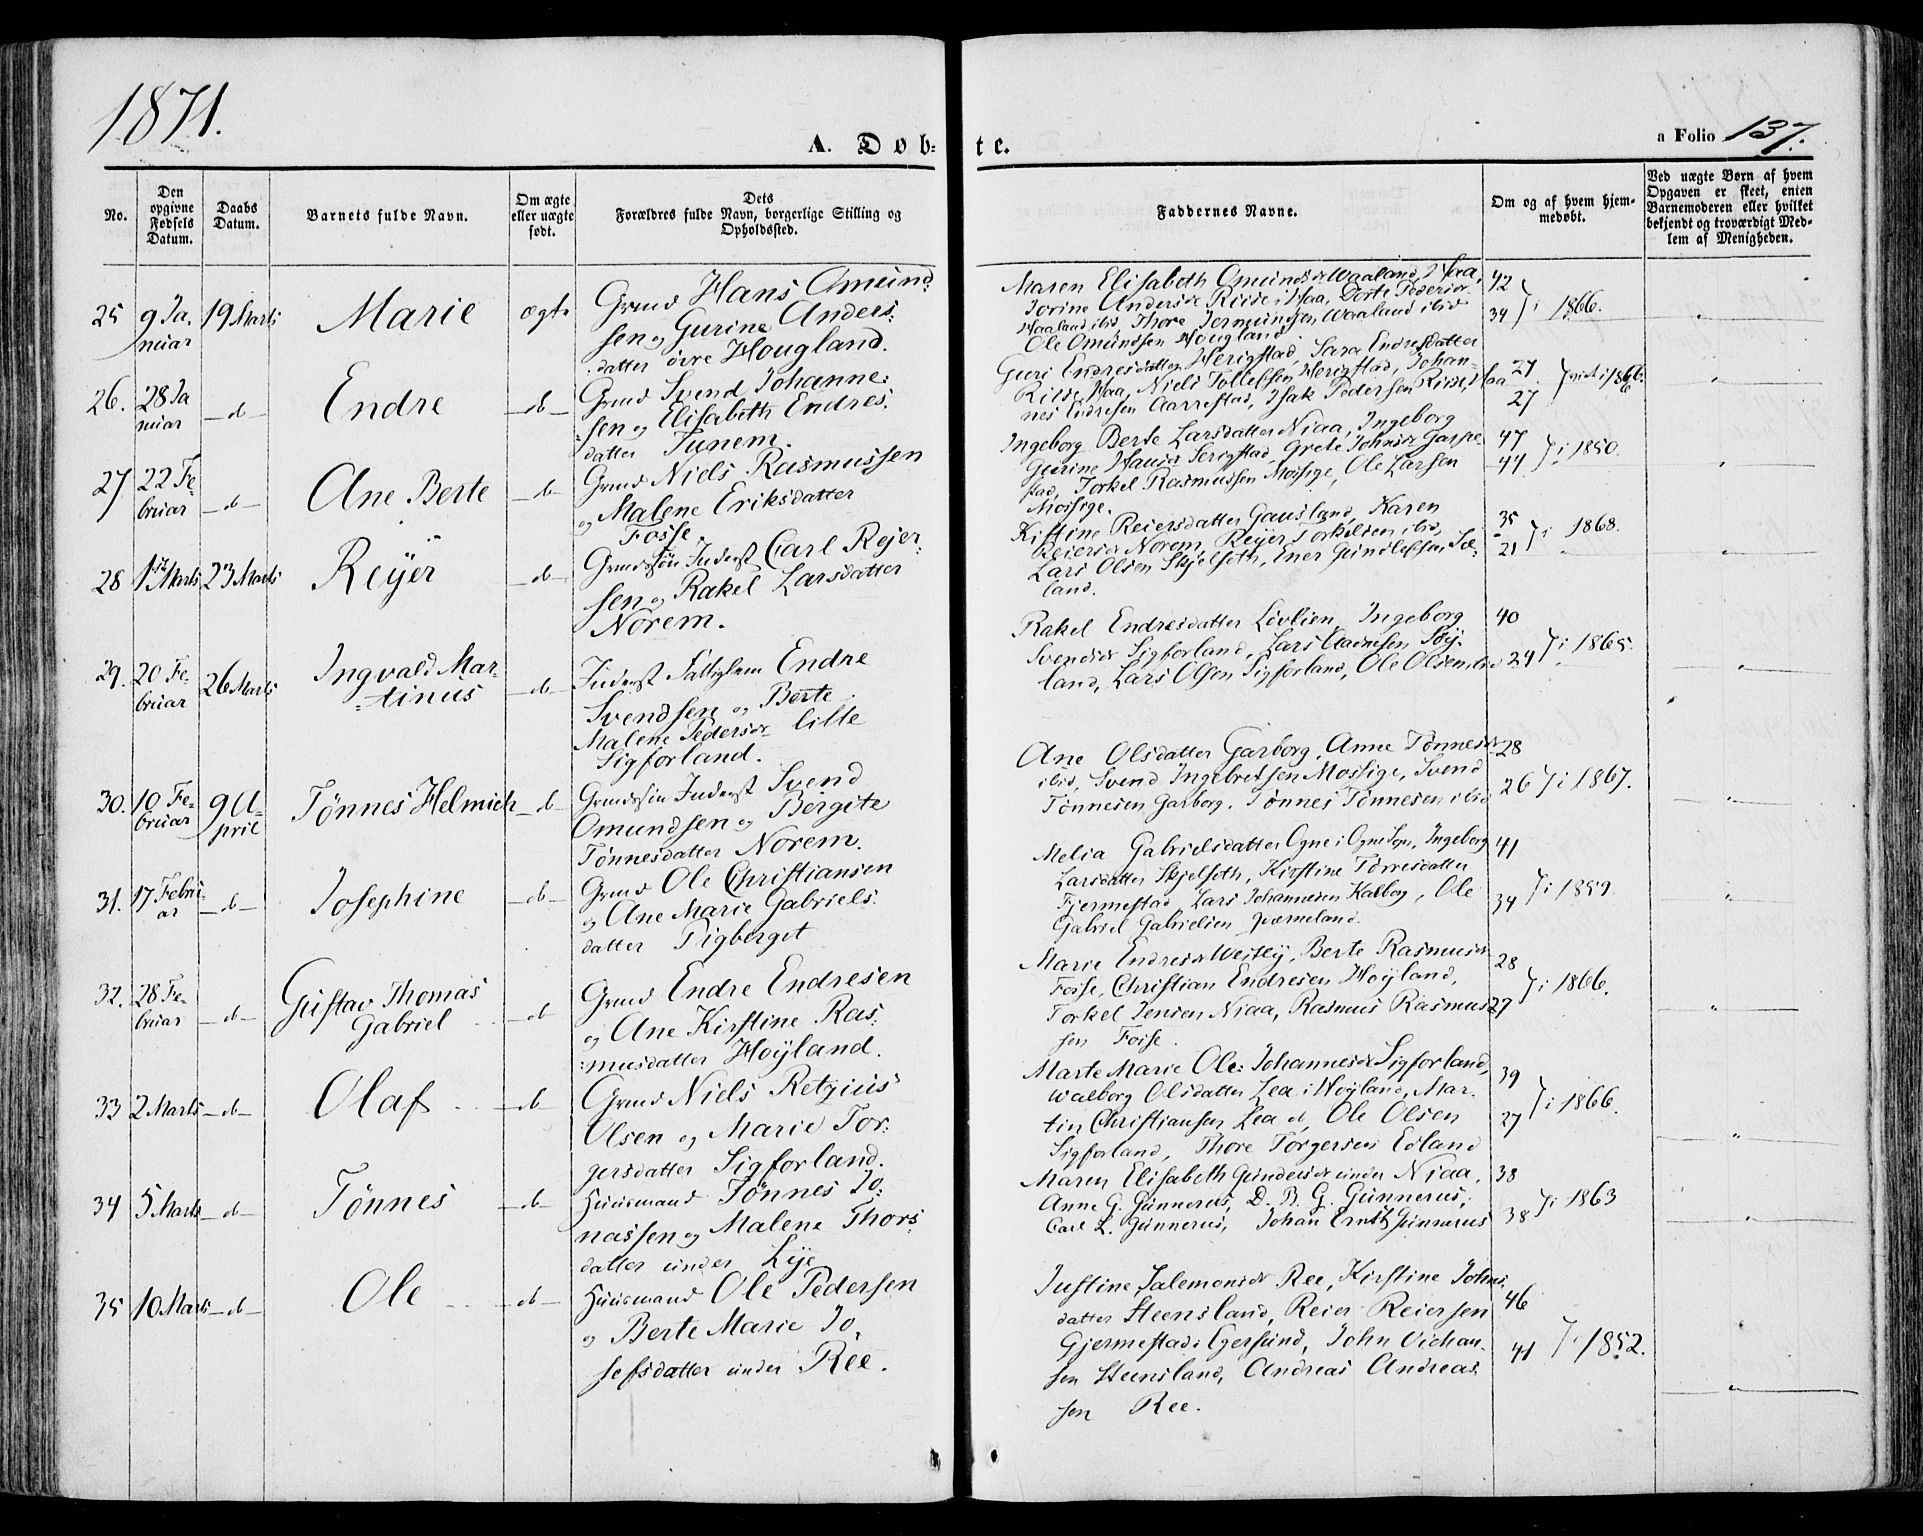 1871.
A. Døb-te.
a Folio 137.
No.
Den opgivne Fødsels Datum.
Daabs Datum.
Barnets fulde Navn.
Om ægte eller uægte født.
Dets Forældres fulde Navn, borgerlige Stilling og Opholdssted.
Faddernes Navne.
Om og af hvem hjemmedøbt.
Ved uægte Børn af hvem Opgaven er skeet, enten Barnemoderen eller hvilket bekjendt og troværdigt Medlem af Menigheden.
25 9 Januar 19 Marts Marie ægte
Grmd Hans Omund:
sen og Gurine Anders:
datter øvre Hougland.
Maren Elisabeth Omundsdr Waaland, Haa, 42
Jorine Andersdr Risse, Haa, Dorte Pedersdr
Haaland ibid, Thore Jermundsen Waaland ibid 34 } i 1866.
Ole Omundsen Hougland
26. 28 Januar -d- Endre -d-
Grmd Svend Johanne:
sen og Elisabeth Endres:
datter Tunem.
Guri Endresdatter Herigstad, Sara Endresdatter
Haa, Niels Tollefsen Herigstad, Johan- 27
nes Endresen Aarrestad, Isak Pedersen Haa 27 } 1866.
27 22 Februar -d- Ane Berte -d-
Grmd Niels Rasmussen
og Malene Eriksdatter
Fosse.
Ingeborg Berte Larsdatter Niaa, Ingeborg 47
Gurine Hansdr Serigstad, Grete Johnsdr Garpe- 44 } i 1850.
stad, Torkel Rasmussen Mossige, Ole Larsen
Mossige.
28 1ste Marts 23 Marts Reÿer -d-
Grmdssøn Inderst Carl Rejer:
sen og Rakel Larsdatter
Norem.
Kistine Reiersdatter Gausland, Karen 35
Reiersdr Norem, Reÿer Torkelsen ibid, 21 } i 1868.
Lars Olsen Skjelseth, Ener Gundlefsen Sæ-
land.
29. 20 Februar 26 Marts Ingvald Mar-
tinus -d-
Inderst Fattiglem Endre
Svendsen og Berte
Malene Pedersdr lille
Sigforland.
Rakel Endresdatter Løvlien, Ingeborg 40
Svendsdr Sigforland, Lars Aadnesen Høÿ-
land, Lars Olsen Sigforland, Ole Olsen ibid 24 } i 1865.
30. 10 Februar 9 April Tønnes Helmich -d-
Grmdssøn Inderst Svend
Omundsen og Bergite
Tønnesdatter Norem.
Ane Olsdatter Garborg, Anne Tønnesdr 28
ibid, Svend Ingebretsen Mossige, Svend
Tønnesen Garborg, Tønnes Tønnesen ibid 26 } i 1867.
31. 17 Februar -d- Josephine -d-
Grmd Ole Christiansen
og Ane Marie Gabriels:
datter Tigberget
Melia Gabrielsdatter Ogne i Ogne Sogn, Ingeborg 41
Larsdatter Skjelseth, Kirstine Torresdatter
Fjermestad, Lars Johannesen Kalberg, Ole 34 } i 1859.
Gabriel Gabrielsen Qværneland.
32. 28 Februar -d- Gustav Thomas
Gabriel -d-
Grmd Endre Endresen
og Ane Kirstine Ras:
musdatter Høÿland.
Marie Endresdr Westly, Berte Rasmusdr 28
Fosse, Christian Endresen Høÿland, } i 1866.
Torkel Jensen Niaa, Rasmus Rasmus- 27
sen Fosse.
33 2 Marts -d- Olaf -d-
Grmd Niels Retzius
Olsen og Marie Tor:
gersdatter Sigforland.
Marte Marie Ole: Johannesdr Sigforland, 39
Walborg Olsdatter Lea i Høÿland, Mar-
tin Christiansen Lea d, Ole Olsen 27 } i 1866.
Sigforland, Thore Torgersen Edland
34 5 Marts -d- Tønnes -d-
Huusmand Tønnes Jo:
nassen og Malene Thors:
datter under Lÿe
Maren Elisabeth Gundersdr under Niaa, 38
Anne G. Gunnerus, D. B. G. Gunnerus,
Carl L. Gunnerus, Johan Ernst Gunnerus 38 } i 1863
35 10 Marts -d- Ole -d-
Huusmand Ole Pedersen
og Berte Marie Jo:
sefsdatter under Ree.
Justine Salemonsdr Ree, Kirstine Johns 46
datter Steensland, Reier Reiersen
Gjermestad i Egersund, John 41 } i 1852.
sen Steensland, Andreas Andreas
sen Ree.